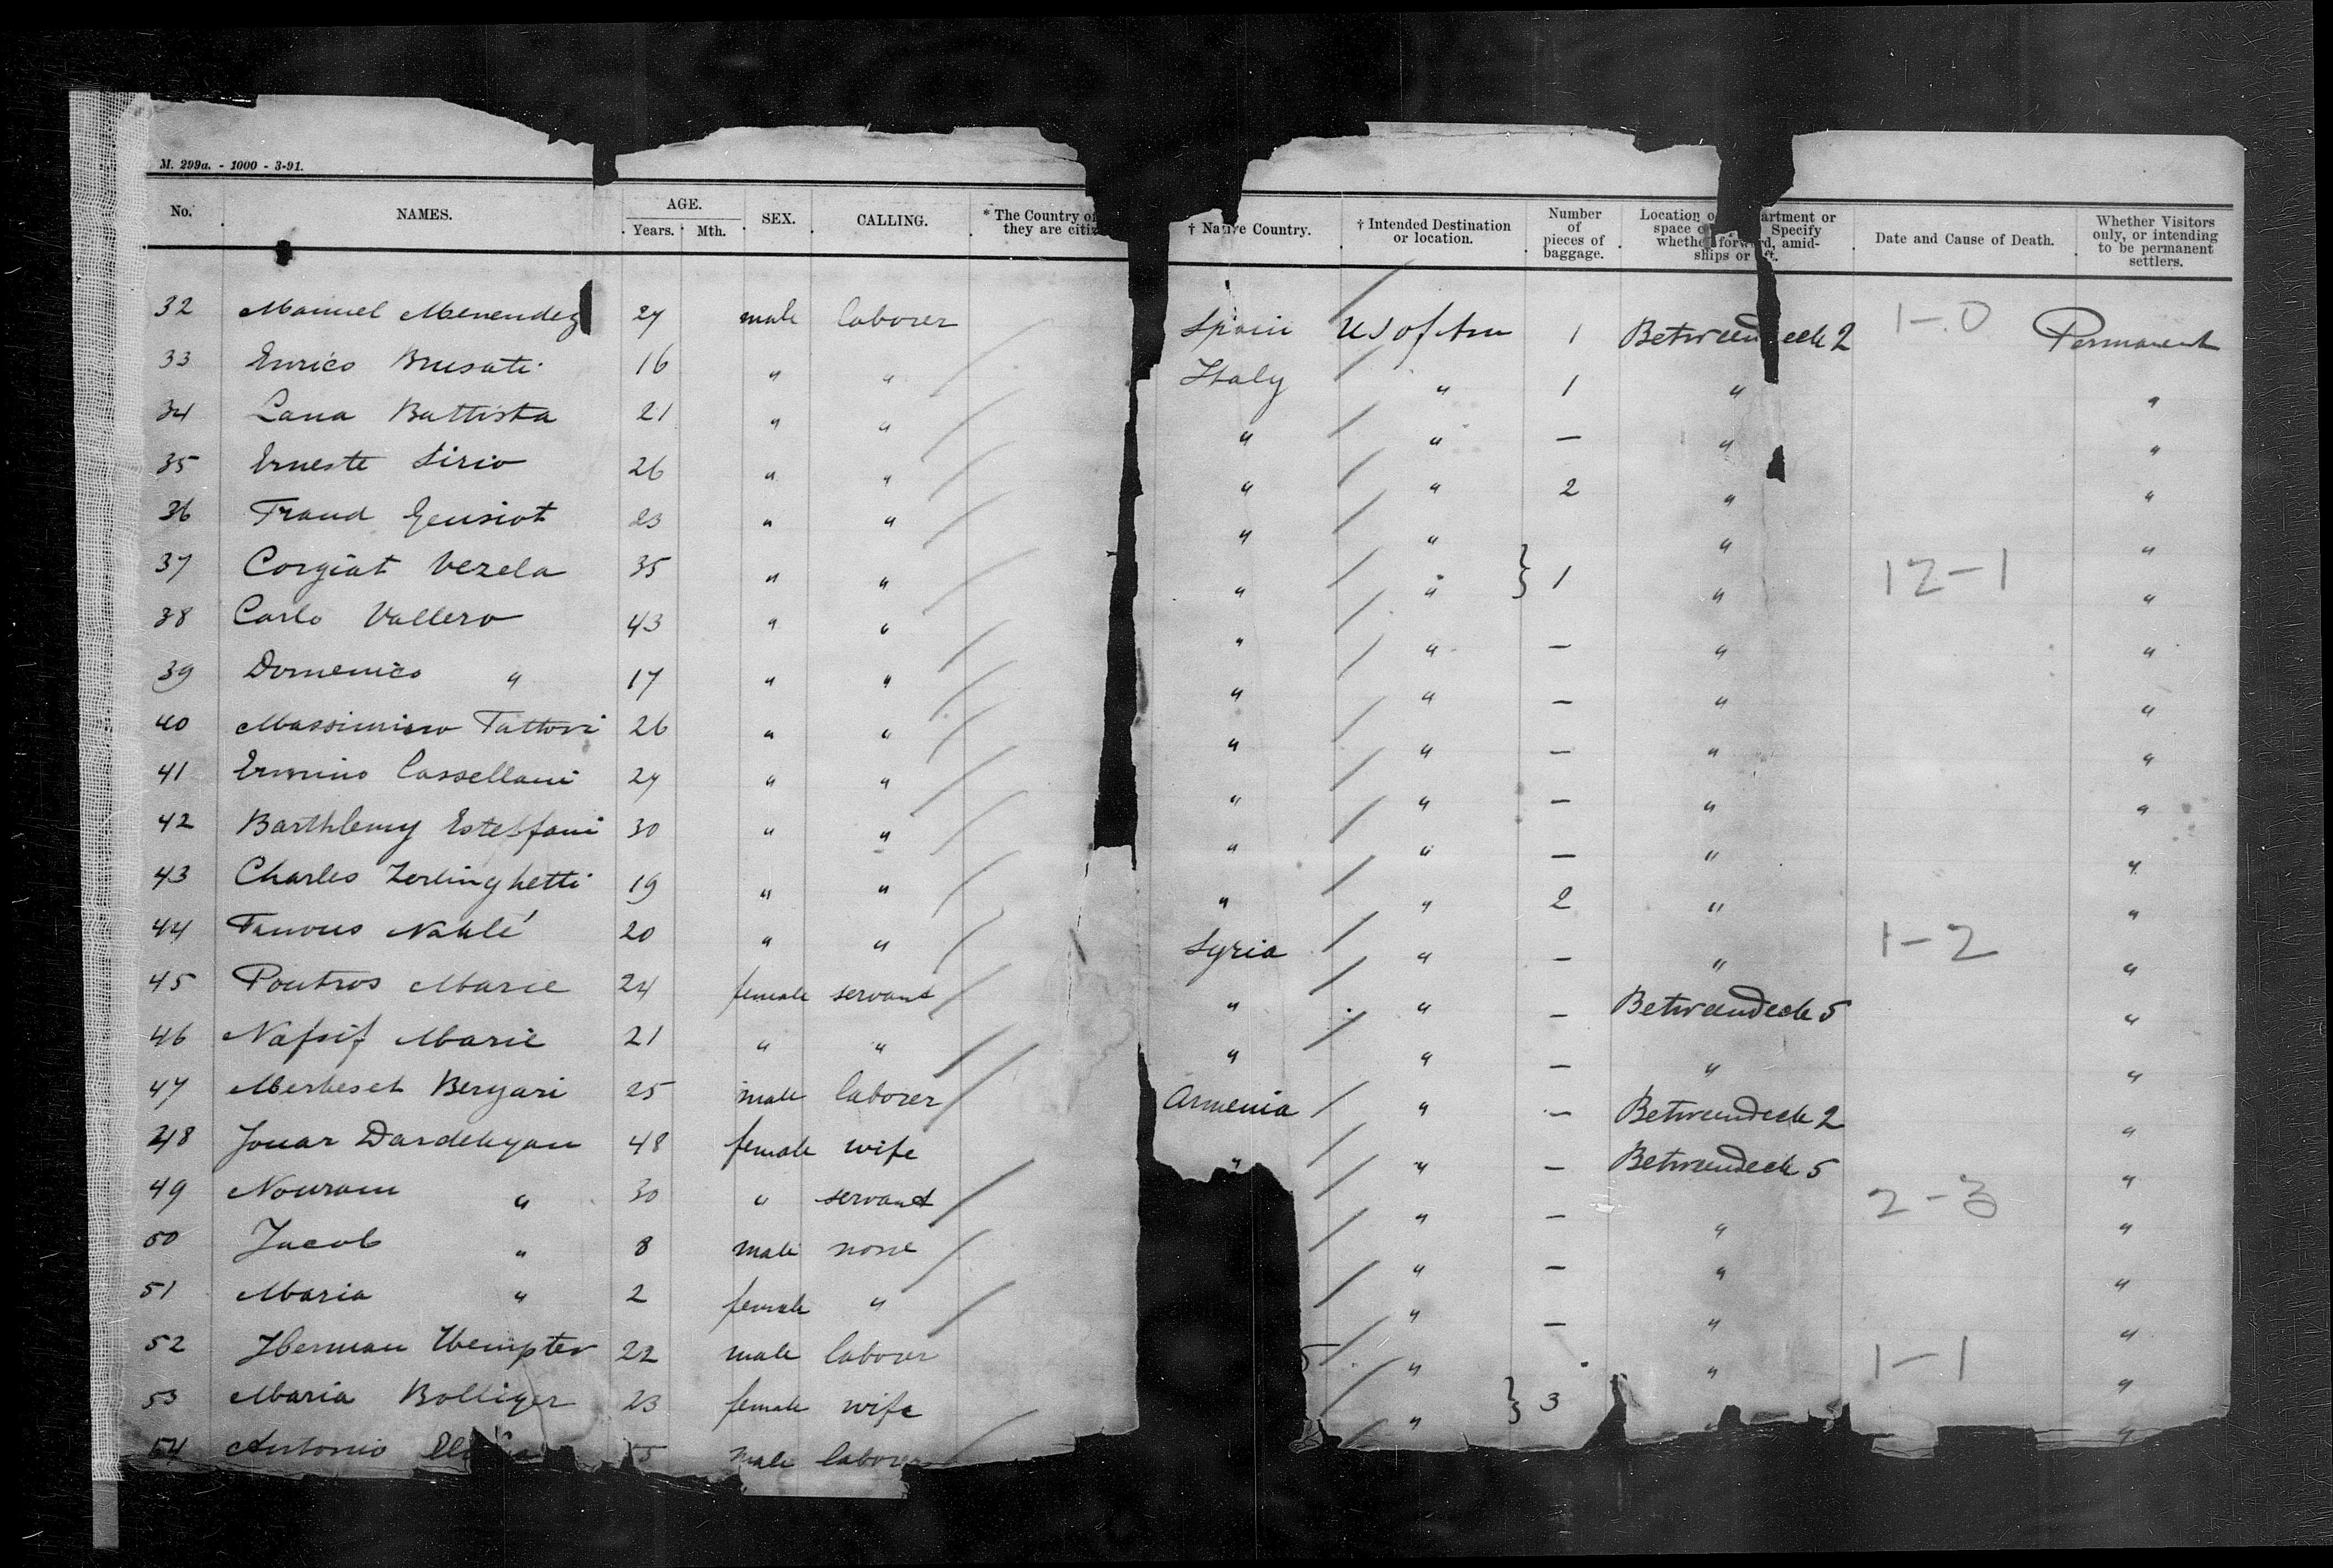 M. 299a. - 1000 - 3-91.
No. NAMES. AGE. Years. Mth. SEX. CALLING. * The Country of they are citiz † Native Country. † Intended Destination or location. Number of pieces of baggage. Location o artment or space o Specify whether forward, amidships or aft. Date and Cause of Death. Whether Visitors only, or intending to be permanent settlers.
32 Manuel Menendez 27 male laborer Spain US of Am 1 Betweendeck 2 1-0 Permanent
33 Enrico Brusati 16 " " Italy " 1 " "
34 Lana Battista 21 " " " " — " "
35 Erneste Sirio 26 " " " " 2 " "
36 Fraud Gensiot 23 " " " " " "
37 Corgiat Vezela 35 " " " " } 1 " 12-1 "
38 Carlo Vallero 43 " " " " — " "
39 Domenico " 17 " " " " — " "
40 Massimino Fattori 26 " " " " — " "
41 Ermino Cassellani 27 " " " " — " "
42 Barthlemy Esteffani 30 " " " " — " "
43 Charles Zerlinghetti 19 " " " " 2 " "
44 Fanous Nahlé 20 " " Syria " — " 1-2 "
45 Poutros Marie 24 female servant " " — Betweendeck 5 "
46 Nafsif Marie 21 " " " " — " "
47 Merkeset Beryari 25 male laborer Armenia " — Betweendeck 2 "
48 Jouar Dardekyan 48 female wife " " — Betweendeck 5 "
49 Nouram " 30 " servant " — " 2-3 "
50 Jacob " 8 male none " — " "
51 Maria " 2 female " " — " "
52 Herman Wempter 22 male laborer " " 1-1 "
53 Maria Bolliger 23 female wife " } 3 "
54 Antonio male laborer "